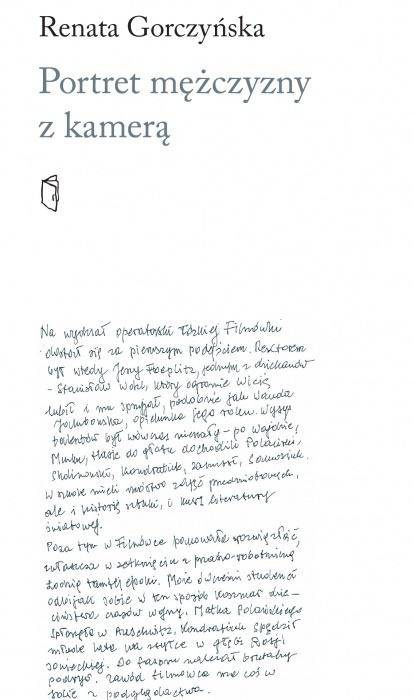 Renata Gorczyńska
Portret mężczyzny
z kamerą
Na wydział operatorski łódzkiej Filmówki
dostał się za pierwszym podejściem. Rektorem
był wtedy Jerzy Toeplitz, jednym z dziekanów
– Stanisław Wohl, który ogromnie Wicią
lubił i mu sprzyjał, podobnie jak Wanda
Jakubowska, opiekunka jego roku. Wysyp
talentów był wówczas niemały – po Wajdzie,
Munku, Hasie do głosu dochodzili Polański,
Skolimowski, Kondratiuk, Zanussi,
W szkole mieli mnóstwo zajęć przedmiotowych,
ale i historię sztuki, i kurs literatury
światowej.
Poza tym w Filmówce panowała rozwiązłość,
zwłaszcza w zetknięciu z prząśno-robotniczą
Łodzią tamtej epoki. Może ówcześni studenci
odbijali sobie w ten sposób koszmar dzie-
ciństwa czasów wojny. Matka Polańskiego
spłonęła w Auschwitz, Kondratiuk spędził
młode lata na zsyłce w głębi Rosji
sowieckiej. Do fasonu należał brutalny
podryw. Zawód filmowca ma coś w
sobie z podglądactwa.